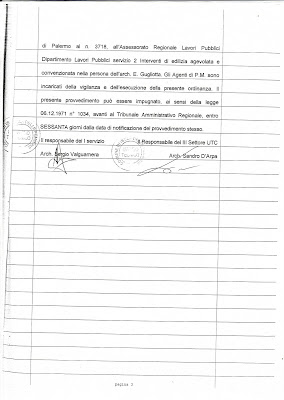 di Palermo al n. 3718, all'Assessorato Regionale Lavori Pubblici
Dipartimento Lavori Pubblici servizio 2 Interventi di edilizia agevolata e
convenzionata nella persona dell'arch. E. Gugliotta. Gli Agenti di P.M. sono
incaricati della vigilanza e dell'esecuzione della presente ordinanza. Il
presente provvedimento può essere impugnato, ai sensi della legge
06.12.1971 n° 1034, avanti al Tribunale Amministrativo Regionale, entro
SESSANTA giorni dalla data di notificazione del provvedimento stesso.
Il responsabile del I servizio Il Responsabile del III Settore UTC
Arch. Sergio Valguarnera Arch. Sandro D'Arpa
pagina 3